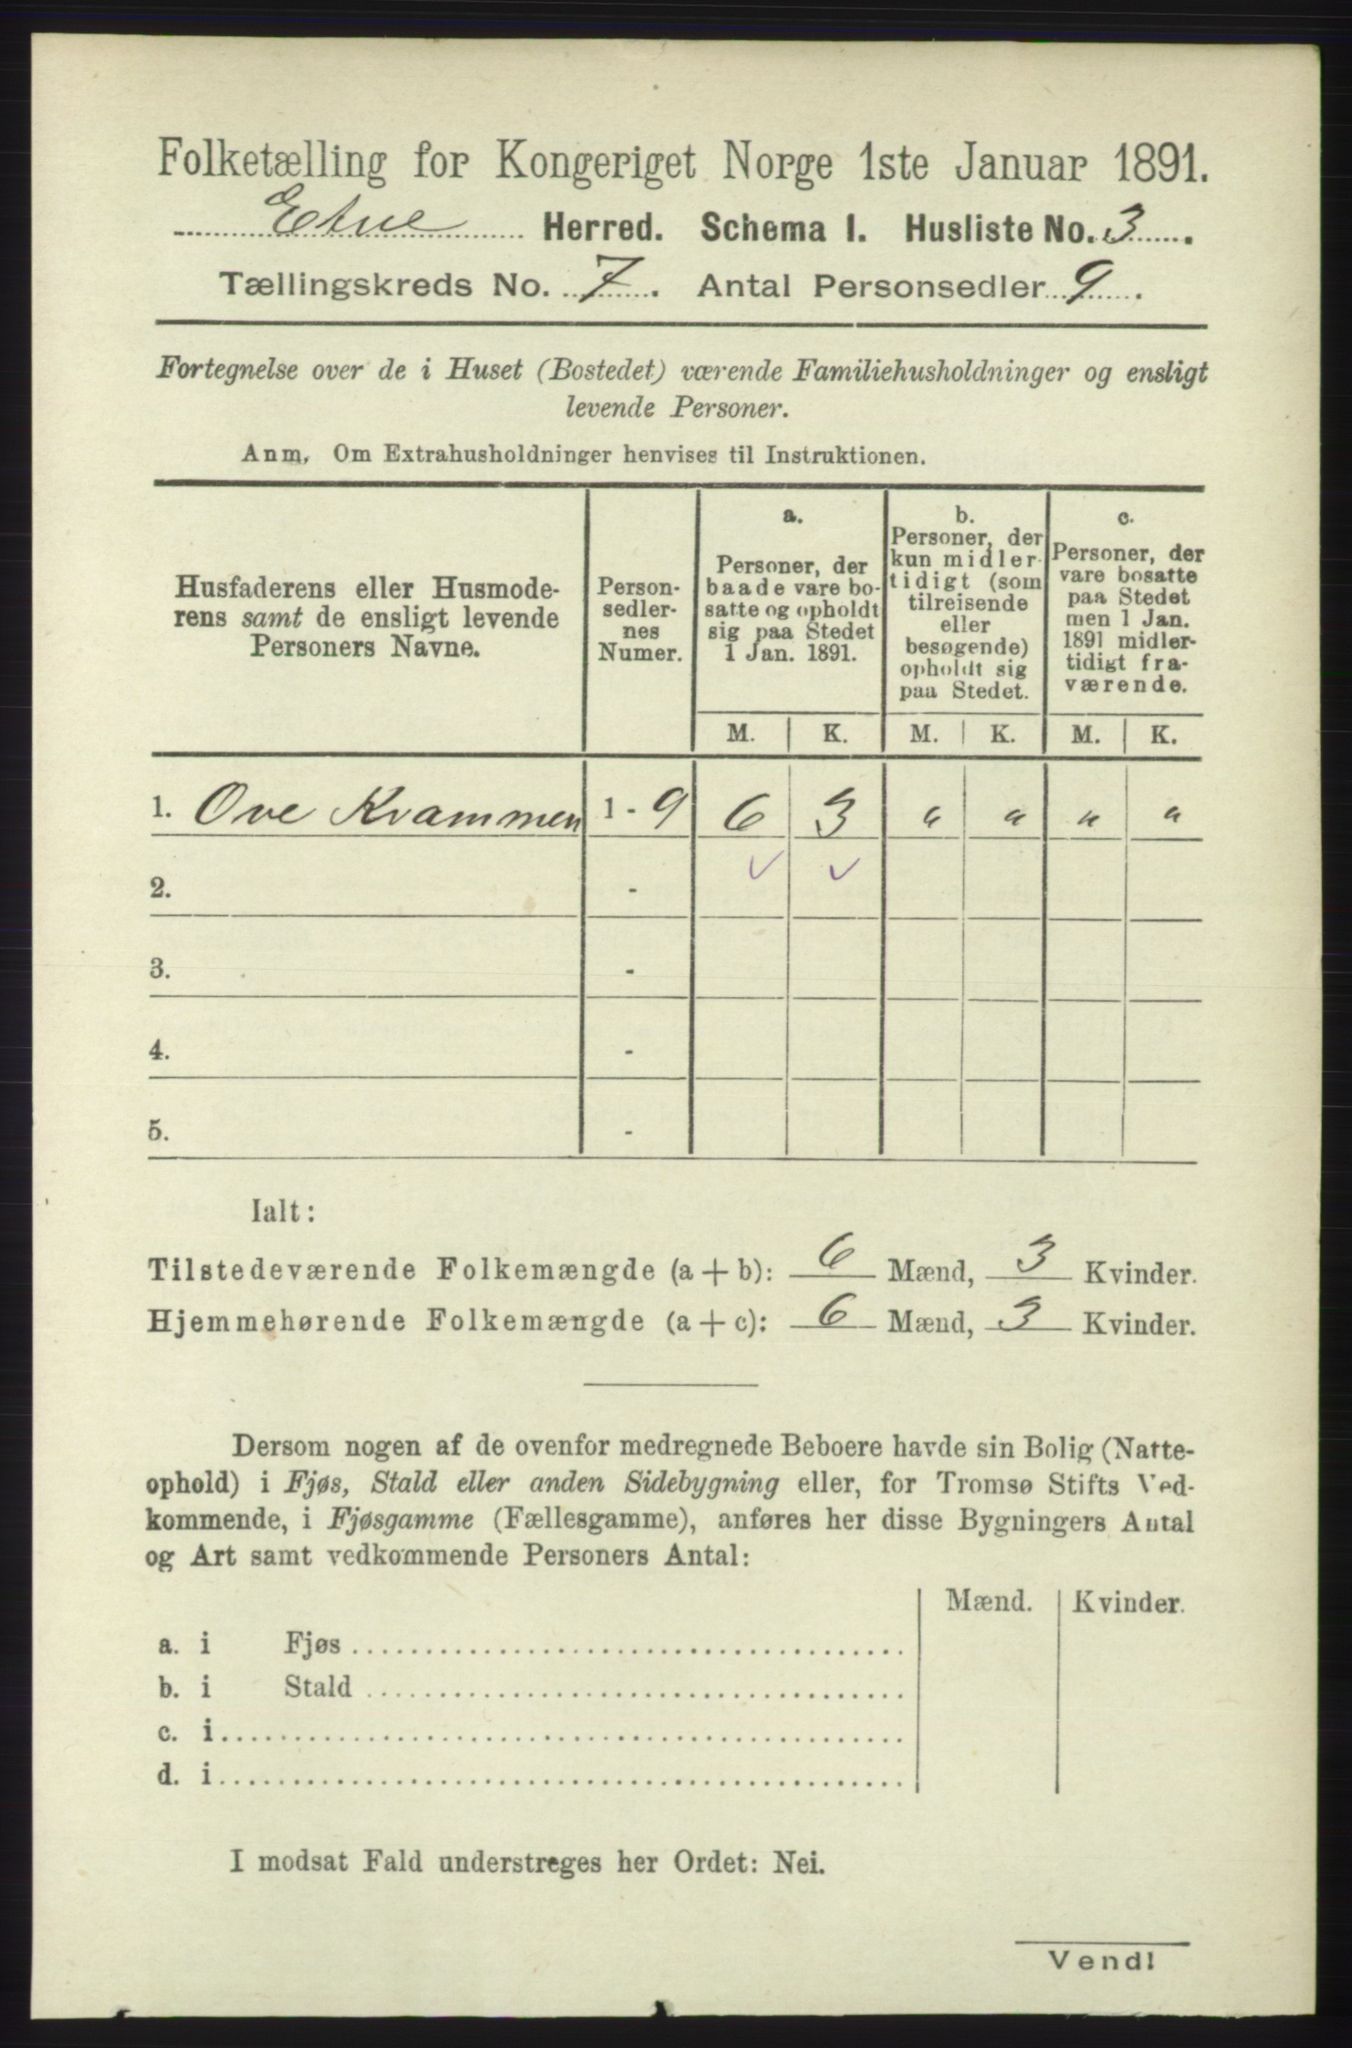 Folketælling for Kongeriget Norge 1ste Januar 1891.
Etne Herred. Schema I. Husliste No. 3.
Tællingskreds No. 7. Antal Personsedler 9.
Fortegnelse over de i Huset (Bostedet) værende Familiehusholdninger og ensligt
levende Personer.
Anm. Om Extrahusholdninger henvises til Instruktionen.
Husfaderens eller Husmode-
rens samt de ensligt levende
Personers Navne.
Person-
sedler-
nes
Numer.
a.
Personer, der
baade vare bo-
satte og opholdt
sig paa Stedet
1 Jan. 1891.
b.
Personer, der
kun midler-
tidigt (som
tilreisende
eller
besøgende)
opholdt sig
paa Stedet.
c.
Personer, der
vare bosatte
paa Stedet
men 1 Jan.
1891 midler-
tidigt fra-
værende.
M. K. M. K. M. K.
1. Ove Kvammen 1 - 9 6 3 " " " "
2. -
3. -
4. -
5. -
Ialt:
Tilstedeværende Folkemængde (a + b): 6 Mænd, 3 Kvinder.
Hjemmehørende Folkemængde (a + c): 6 Mænd, 3 Kvinder.
Dersom nogen af de ovenfor medregnede Beboere havde sin Bolig (Natte-
ophold) i Fjøs, Stald eller anden Sidebygning eller, for Tromsø Stifts Ved-
kommende, i Fjøsgamme (Fællesgamme), anføres her disse Bygningers Antal
og Art samt vedkommende Personers Antal:
Mænd. Kvinder.
a. i Fjøs
b. i Stald
c. i
d. i
I modsat Fald understreges her Ordet: Nei.
Vend!